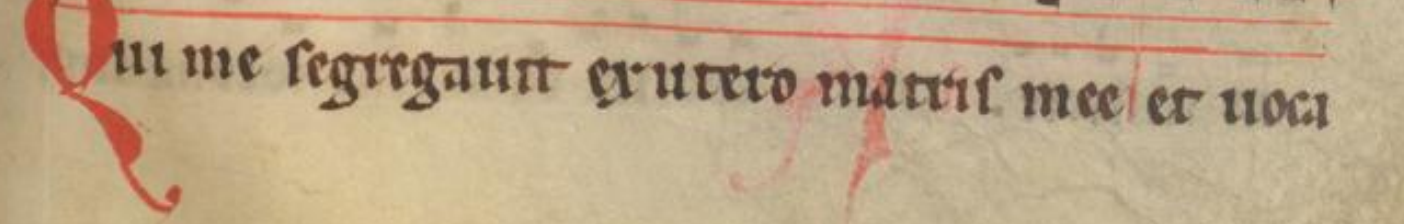 Qui me segregauit ex utero matris mee et uoca